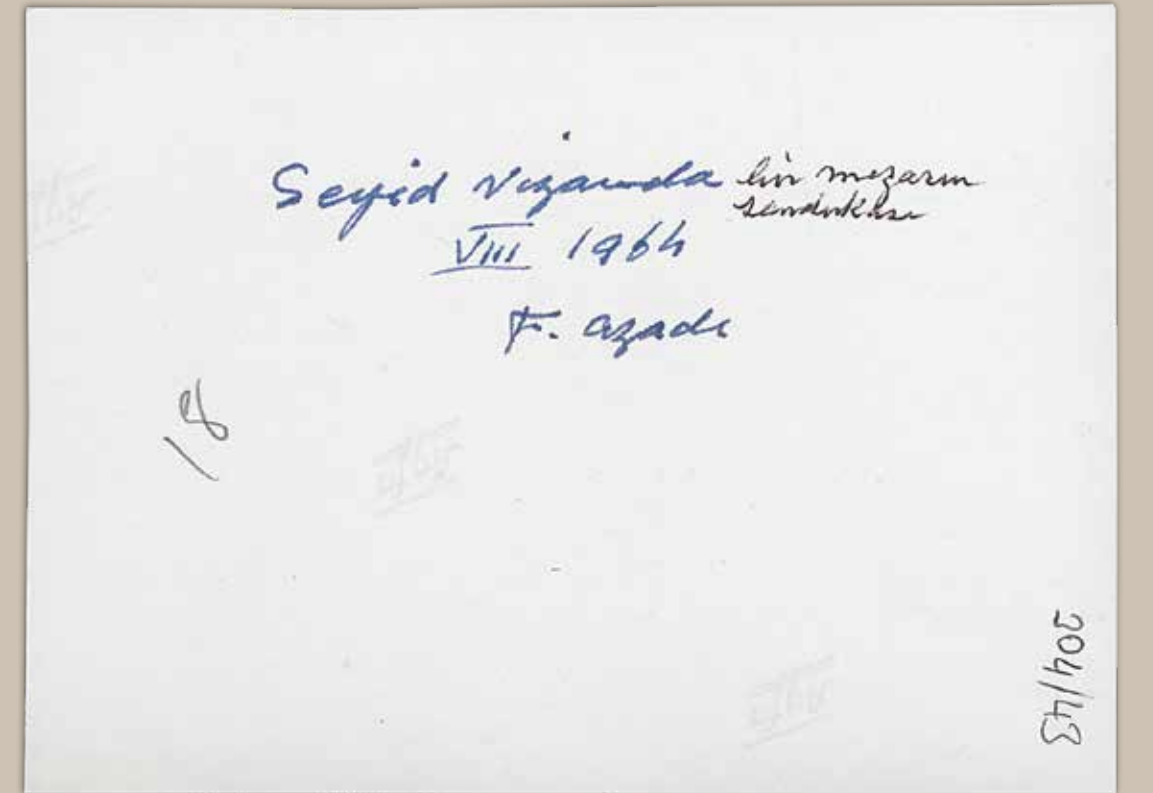 Seyid Nizamda bir mezarın
sandukası
VIII 1964
F. Azadi
18
204/43